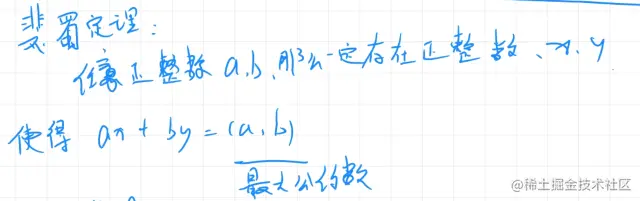 裴蜀定理：
任意正整数 a,b,那么一定存在正整数、x,y
使得 ax + by = (a,b)
最大公约数
@稀土掘金技术社区